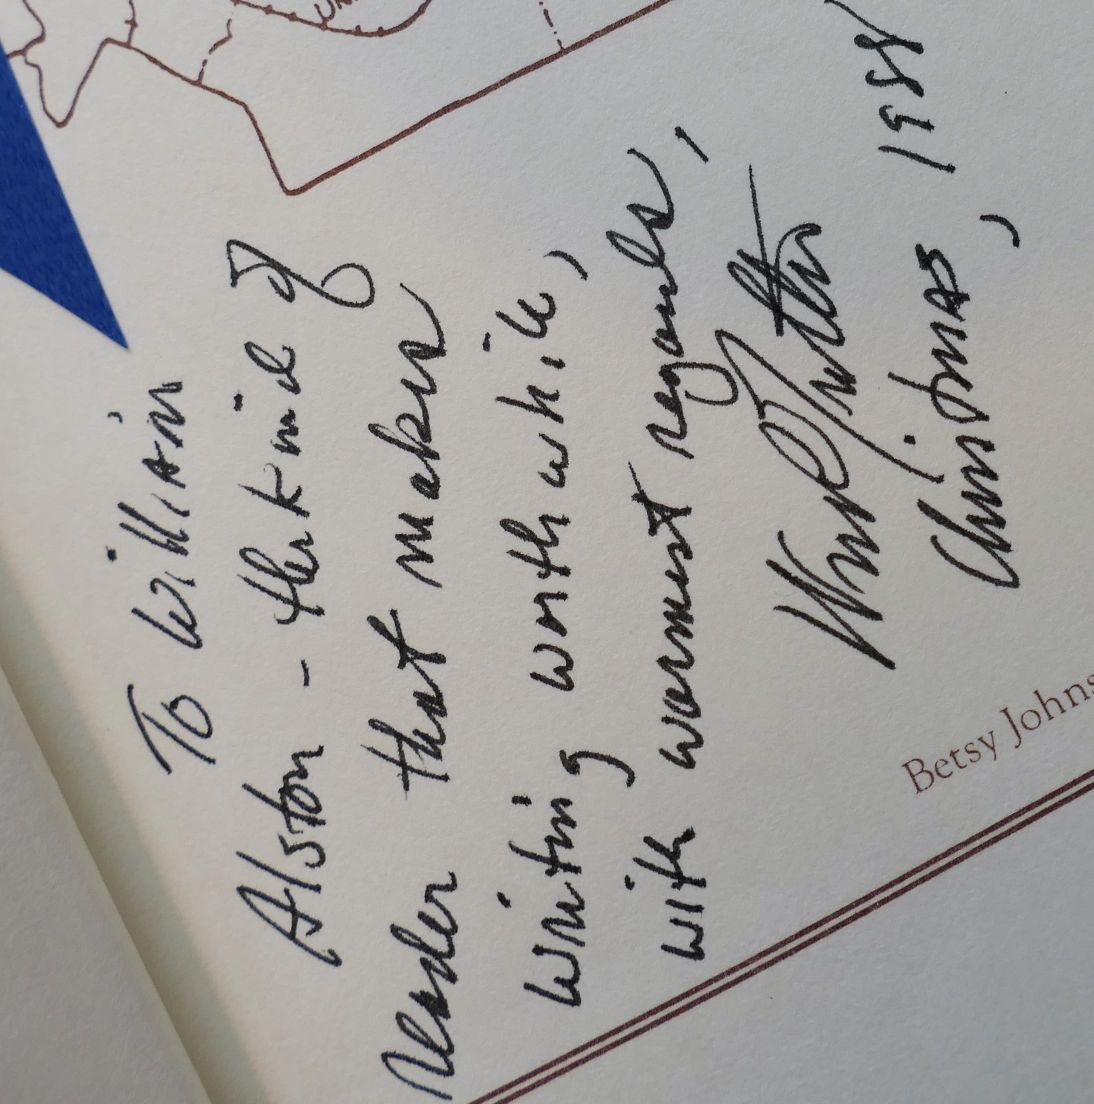 To William
Alston – the kind of
reader that makes
writing worthwhile,
with warmest regards,
Christmas, 1988
Betsy Johns